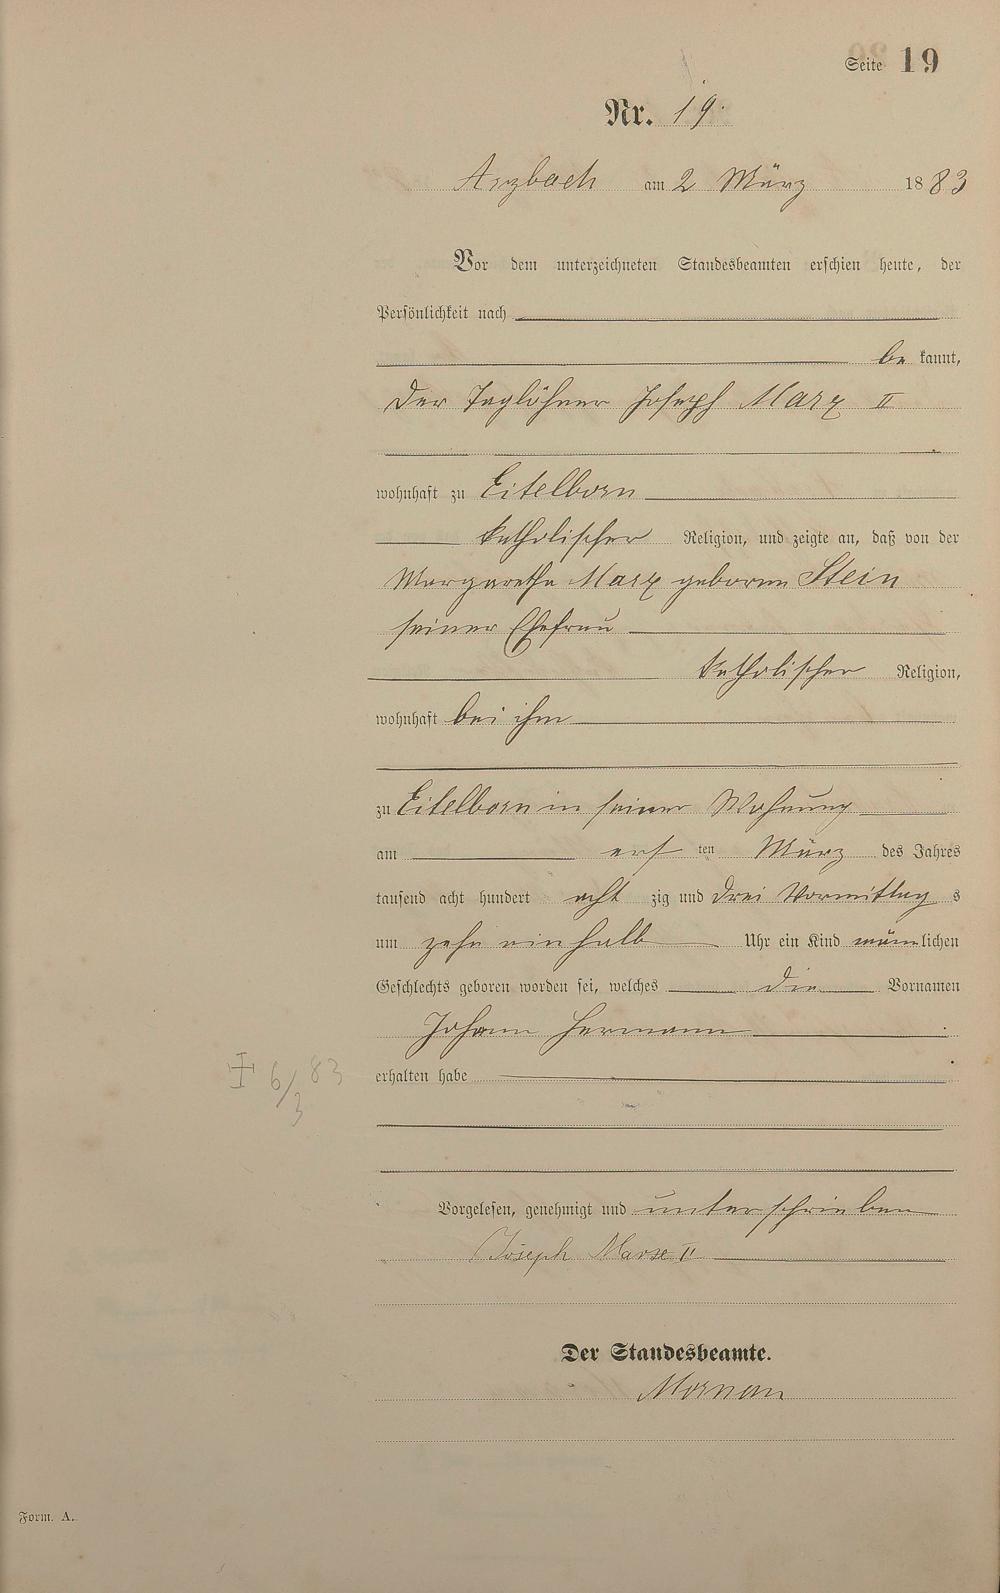 Seite 19
Nr. 19.
Arzbach am 2 März 1883
Vor dem unterzeichneten Standesbeamten erschien heute, der
Persönlichkeit nach
be kannt,
der Taglöhner Joseph Marx II
wohnhaft zu Eitelborn
katholischer Religion, und zeigte an, daß von der
Margaretha Marx geborene Stein
seiner Ehefrau
katholischer Religion,
wohnhaft bei ihm
zu Eitelborn in seiner Wohnung
am ersten März des Jahres
tausend acht hundert achtzig und drei Vormittags
um zehn ein halb Uhr ein Kind männlichen
Geschlechts geboren worden sei, welches die Vornamen
Johann Hermann
erhalten habe
† 6/3 83
Vorgelesen, genehmigt und unterschrieben
Joseph Marx II
Der Standesbeamte.
Form. A.